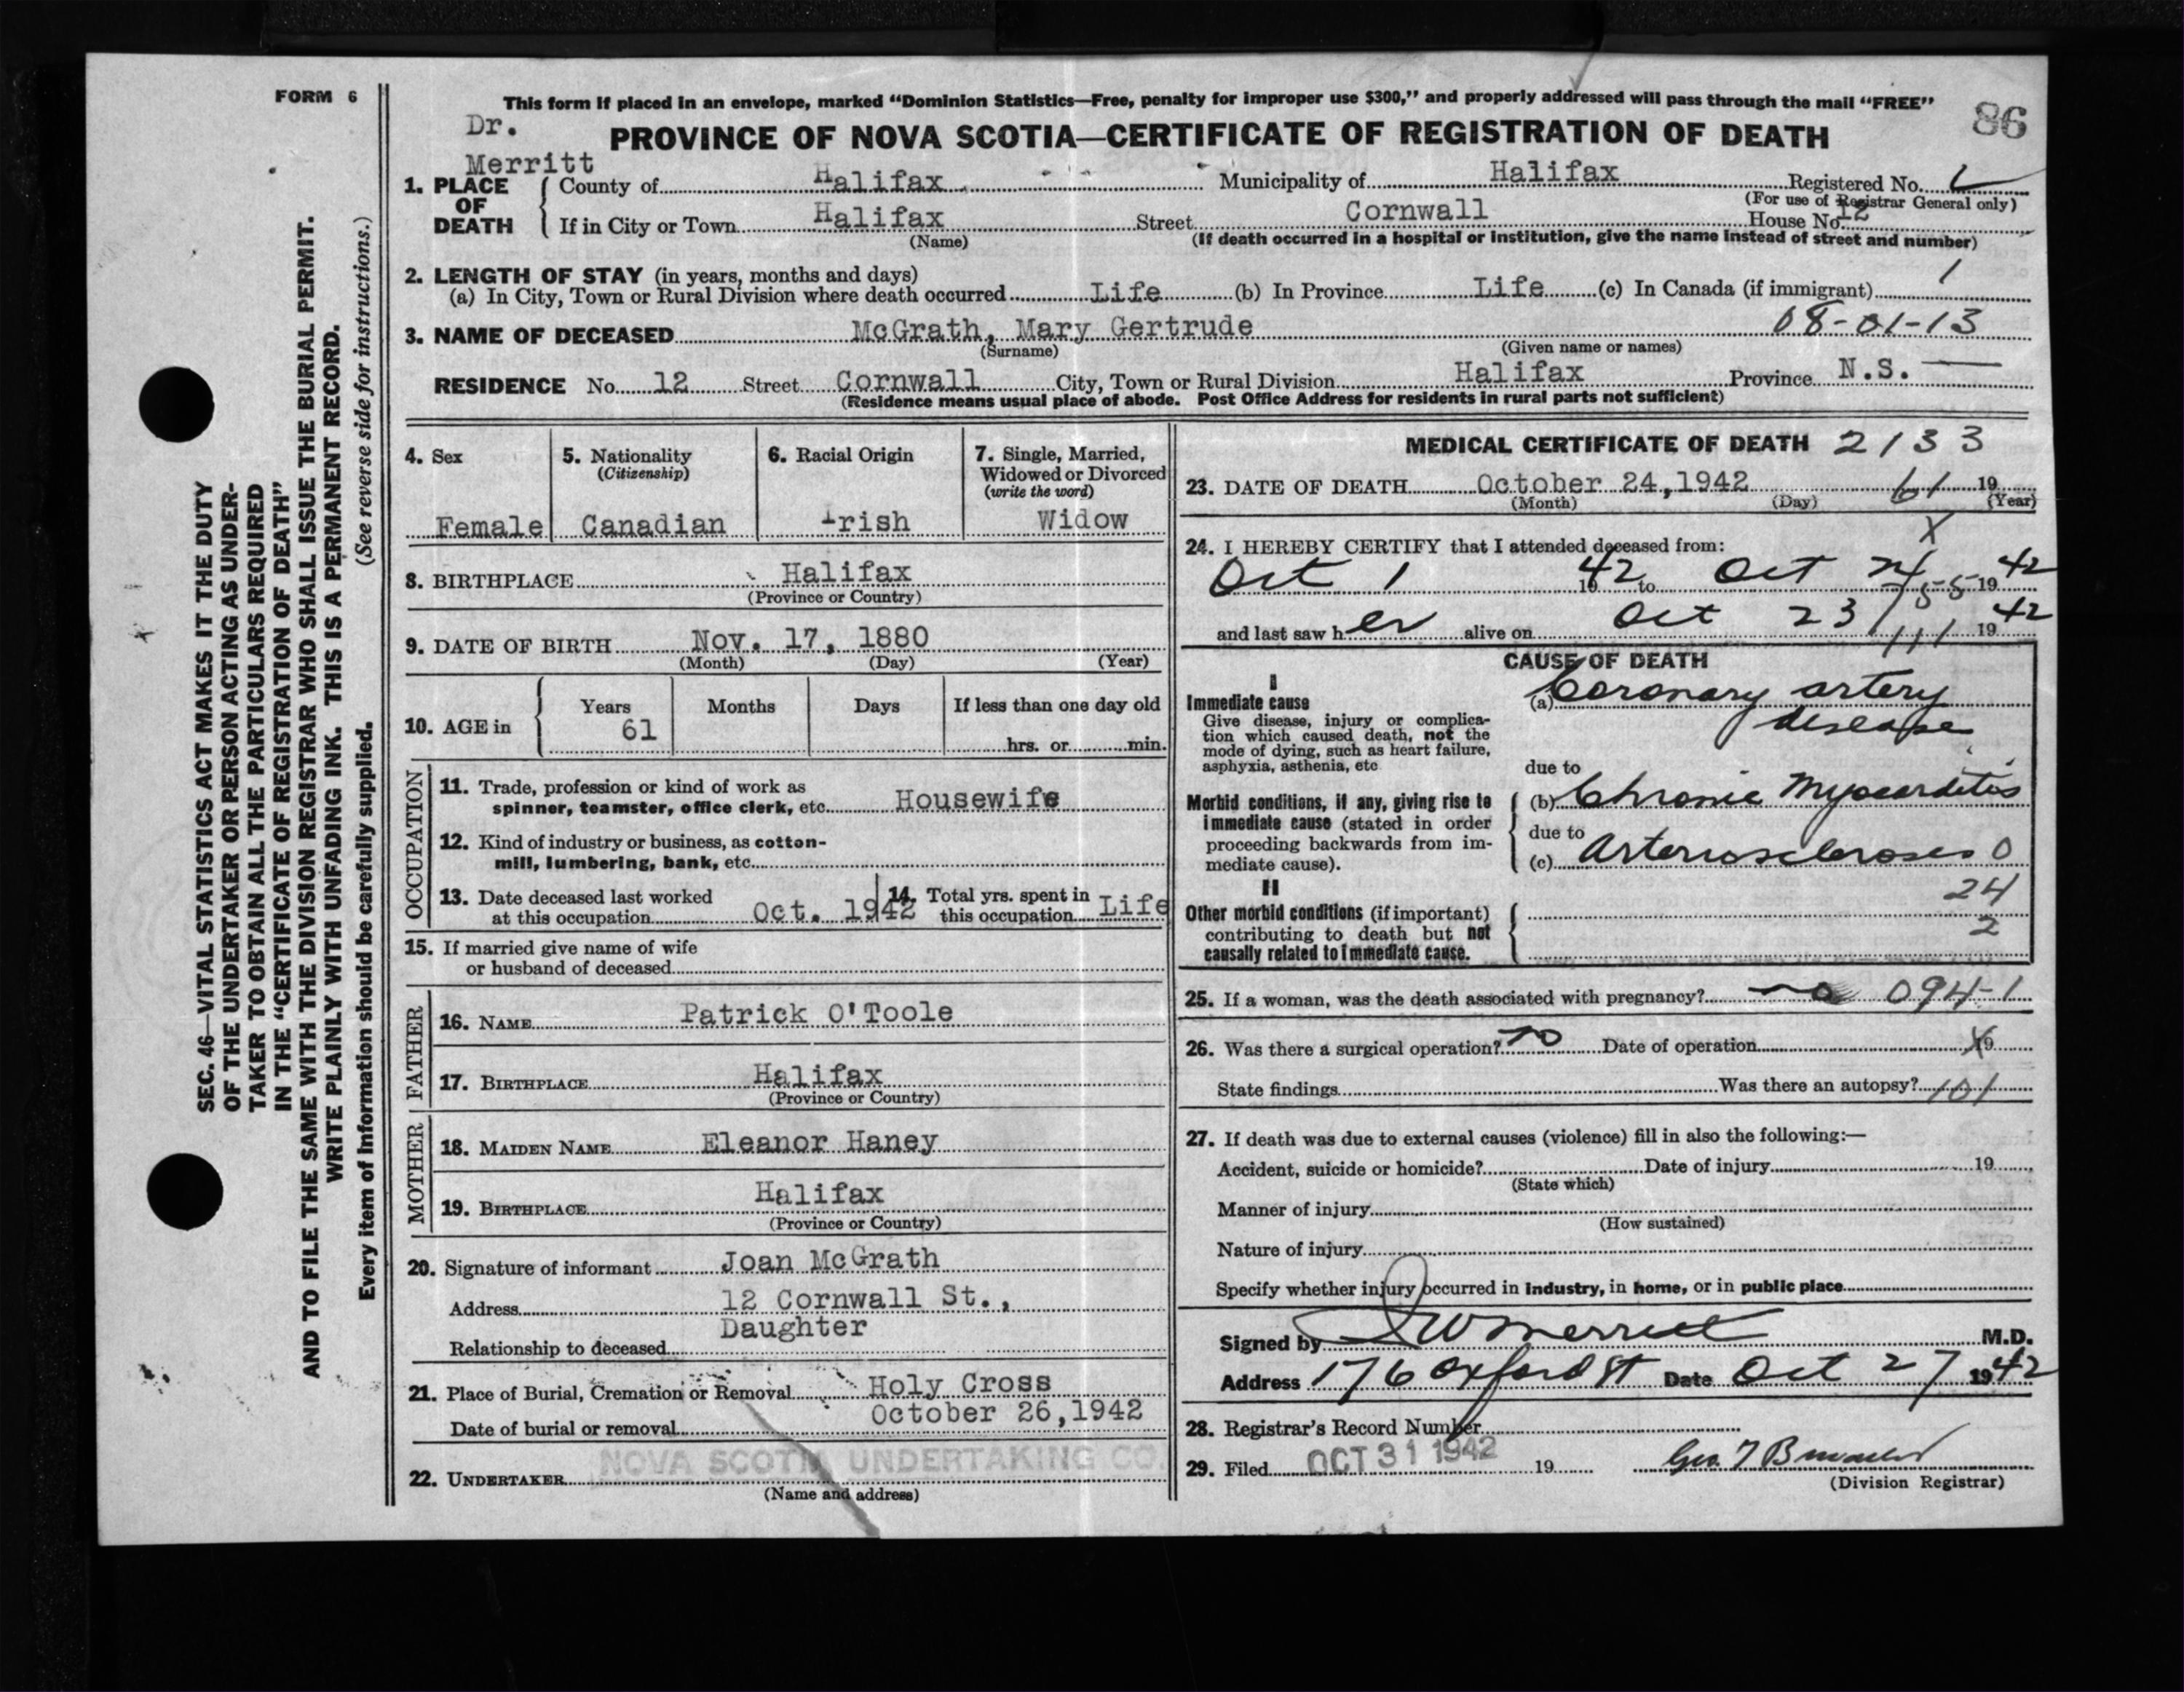 FORM 6
This form if placed in an envelope, marked "Dominion Statistics—Free, penalty for improper use $300," and properly addressed will pass through the mail "FREE"
Dr.
Merritt
PROVINCE OF NOVA SCOTIA—CERTIFICATE OF REGISTRATION OF DEATH
86
1. PLACE OF DEATH
County of Halifax Municipality of Halifax Registered No.
(For use of Registrar General only)
If in City or Town Halifax Street Cornwall House No. 12
(Name) (If death occurred in a hospital or institution, give the name instead of street and number)
2. LENGTH OF STAY (in years, months and days)
(a) In City, Town or Rural Division where death occurred Life (b) In Province Life (c) In Canada (if immigrant) 1
3. NAME OF DECEASED McGrath, Mary Gertrude 08-01-13
(Surname) (Given name or names)
RESIDENCE No. 12 Street Cornwall City, Town or Rural Division Halifax Province N.S.
(Residence means usual place of abode. Post Office Address for residents in rural parts not sufficient)
4. Sex
Female
5. Nationality
(Citizenship)
Canadian
6. Racial Origin
Irish
7. Single, Married,
Widowed or Divorced
(write the word)
Widow
8. BIRTHPLACE Halifax
(Province or Country)
9. DATE OF BIRTH Nov. 17, 1880
(Month) (Day) (Year)
10. AGE in Years Months Days If less than one day old
61
hrs. or min.
OCCUPATION
11. Trade, profession or kind of work as
spinner, teamster, office clerk, etc. Housewife
12. Kind of industry or business, as cotton-
mill, lumbering, bank, etc.
13. Date deceased last worked
at this occupation Oct. 1942
14. Total yrs. spent in
this occupation Life
15. If married give name of wife
or husband of deceased
FATHER
16. NAME Patrick O'Toole
17. BIRTHPLACE Halifax
(Province or Country)
MOTHER
18. MAIDEN NAME Eleanor Haney
19. BIRTHPLACE Halifax
(Province or Country)
20. Signature of informant Joan McGrath
Address 12 Cornwall St.,
Relationship to deceased Daughter
21. Place of Burial, Cremation or Removal Holy Cross
Date of burial or removal October 26,1942
22. UNDERTAKER NOVA SCOTIA UNDERTAKING CO.
(Name and address)
MEDICAL CERTIFICATE OF DEATH 2133
23. DATE OF DEATH October 24,1942 61 19
(Month) (Day) (Year)
X
24. I HEREBY CERTIFY that I attended deceased from:
Oct 1 1942 to Oct 24 1942
and last saw her alive on Oct 23 1942
CAUSE OF DEATH
I
Immediate cause
Give disease, injury or complica-
tion which caused death, not the
mode of dying, such as heart failure,
asphyxia, asthenia, etc
(a) Coronary artery
disease
due to
Morbid conditions, if any, giving rise to
immediate cause (stated in order
proceeding backwards from im-
mediate cause).
(b) Chronic Myocarditis
due to
(c) Arteriosclerosis 0
II
Other morbid conditions (if important)
contributing to death but not
causally related to immediate cause.
24
2
25. If a woman, was the death associated with pregnancy? no 094-1
26. Was there a surgical operation? no Date of operation X 19
State findings Was there an autopsy? 101
27. If death was due to external causes (violence) fill in also the following:—
Accident, suicide or homicide? Date of injury 19
(State which)
Manner of injury
(How sustained)
Nature of injury
Specify whether injury occurred in industry, in home, or in public place
Signed by W Merritt M.D.
Address 176 Oxford St Date Oct 27 1942
28. Registrar's Record Number
29. Filed OCT 31 1942 19
(Division Registrar)
SEC. 46—VITAL STATISTICS ACT MAKES IT THE DUTY
OF THE UNDERTAKER OR PERSON ACTING AS UNDER-
TAKER TO OBTAIN ALL THE PARTICULARS REQUIRED
IN THE "CERTIFICATE OF REGISTRATION OF DEATH"
AND TO FILE THE SAME WITH THE DIVISION REGISTRAR WHO SHALL ISSUE THE BURIAL PERMIT.
WRITE PLAINLY WITH UNFADING INK. THIS IS A PERMANENT RECORD.
Every item of information should be carefully supplied. (See reverse side for instructions.)